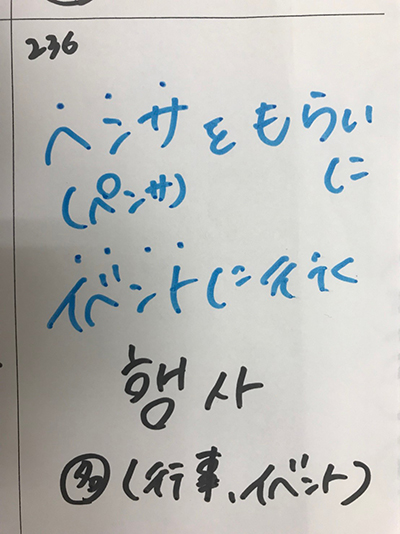 236
ヘンサをもらい
(ペンサ) に
イベントに行く
행사
(行事、イベント)